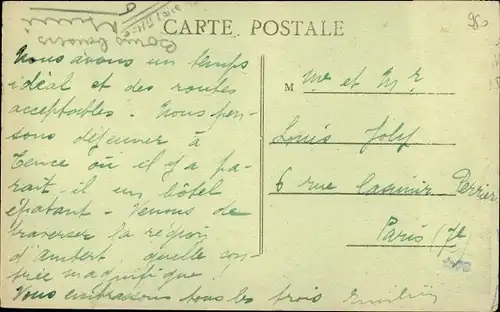 CARTE POSTALE
Nous avons un temps
idéal et des routes
acceptables. Nous pen-
sons déjeuner à
Tence où il y a pa-
rait-il un hôtel
épatant - Venons de
traverser la région
d'Ambert, quelle con-
trée magnifique!
Vous embrassons tous les trois
M me et Mr
Louis Joly
6 rue Casimir Perrier
Paris (7e